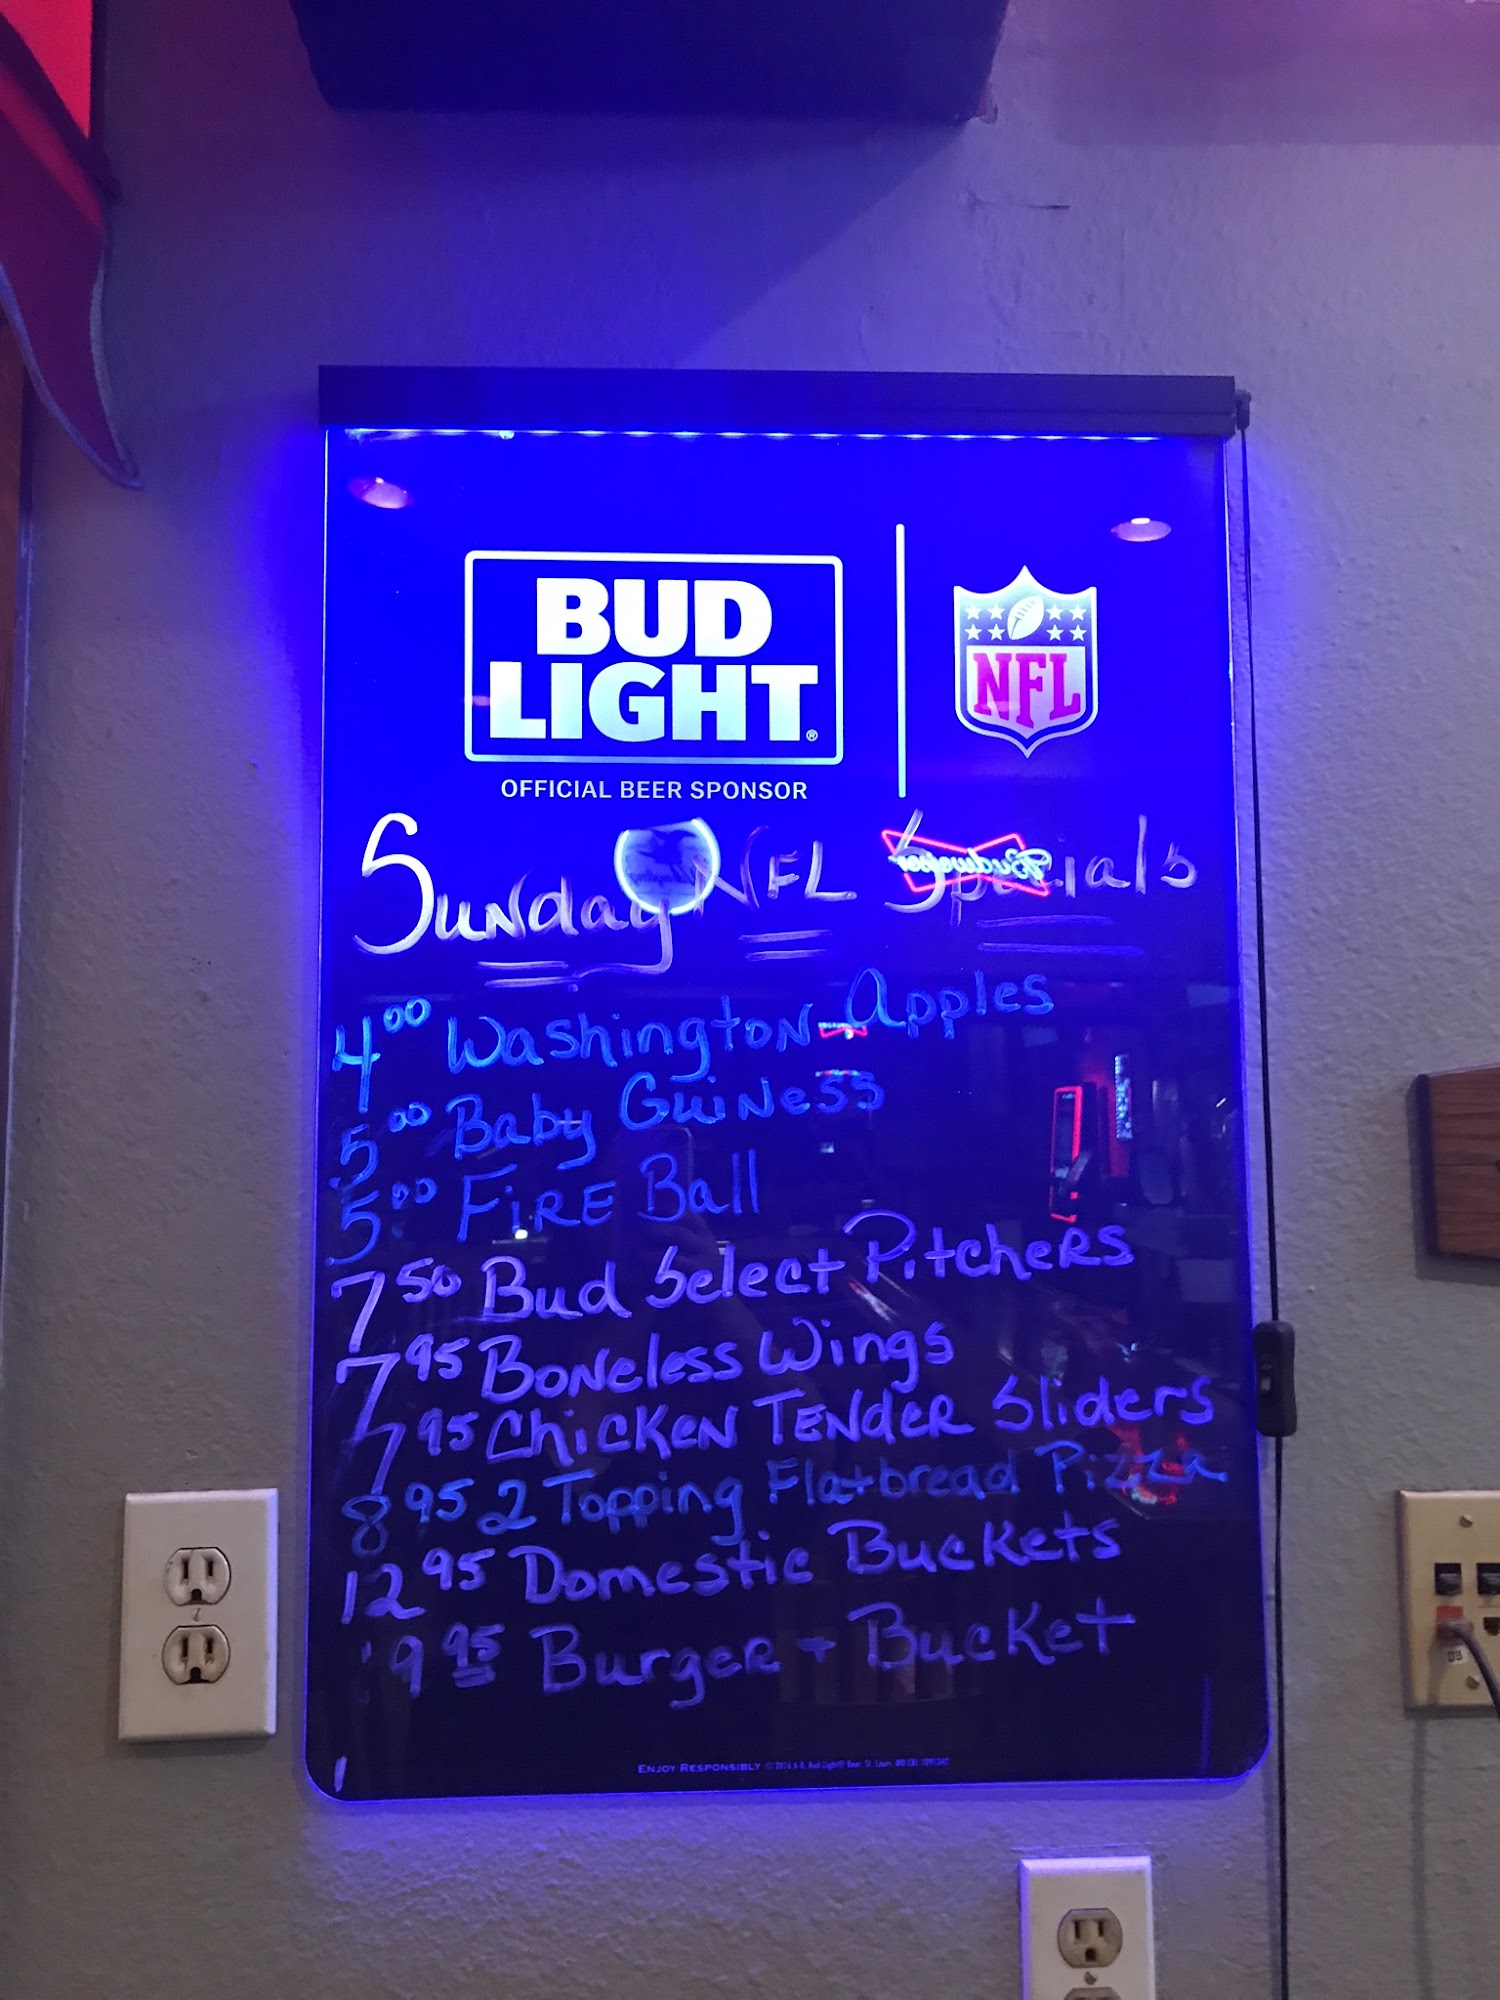 BUD
LIGHT®
OFFICIAL BEER SPONSOR
NFL
Sunday NFL Specials
4⁰⁰ Washington Apples
5⁰⁰ Baby Guiness
5⁰⁰ Fire Ball
7⁵⁰ Bud Select Pitchers
7⁹⁵ Boneless Wings
7⁹⁵ Chicken Tender Sliders
8⁹⁵ 2 Topping Flatbread Pizza
12⁹⁵ Domestic Buckets
19⁹⁵ Burger + Bucket
ENJOY RESPONSIBLY
Budweiser